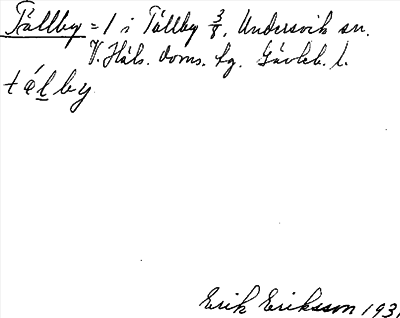 Tällby = 1 i Tällby 3/8, Undersvik sn.
V. Häls. doms. tg. Gävleb. l.
tä́lby
Erik Eriksson 193